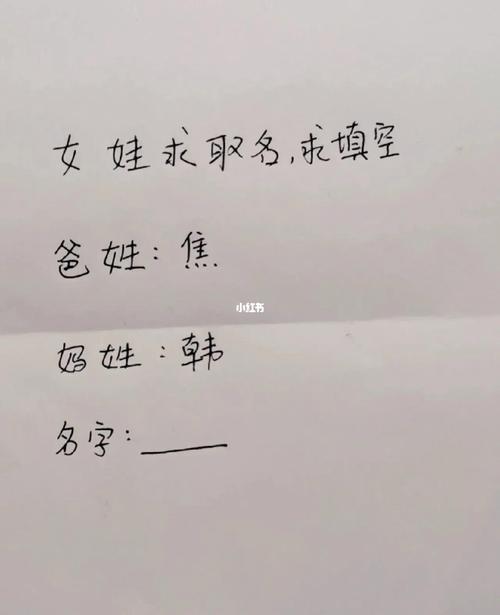 女娃求取名,求填空
爸姓:焦
小红书
妈姓:韩
名字:____